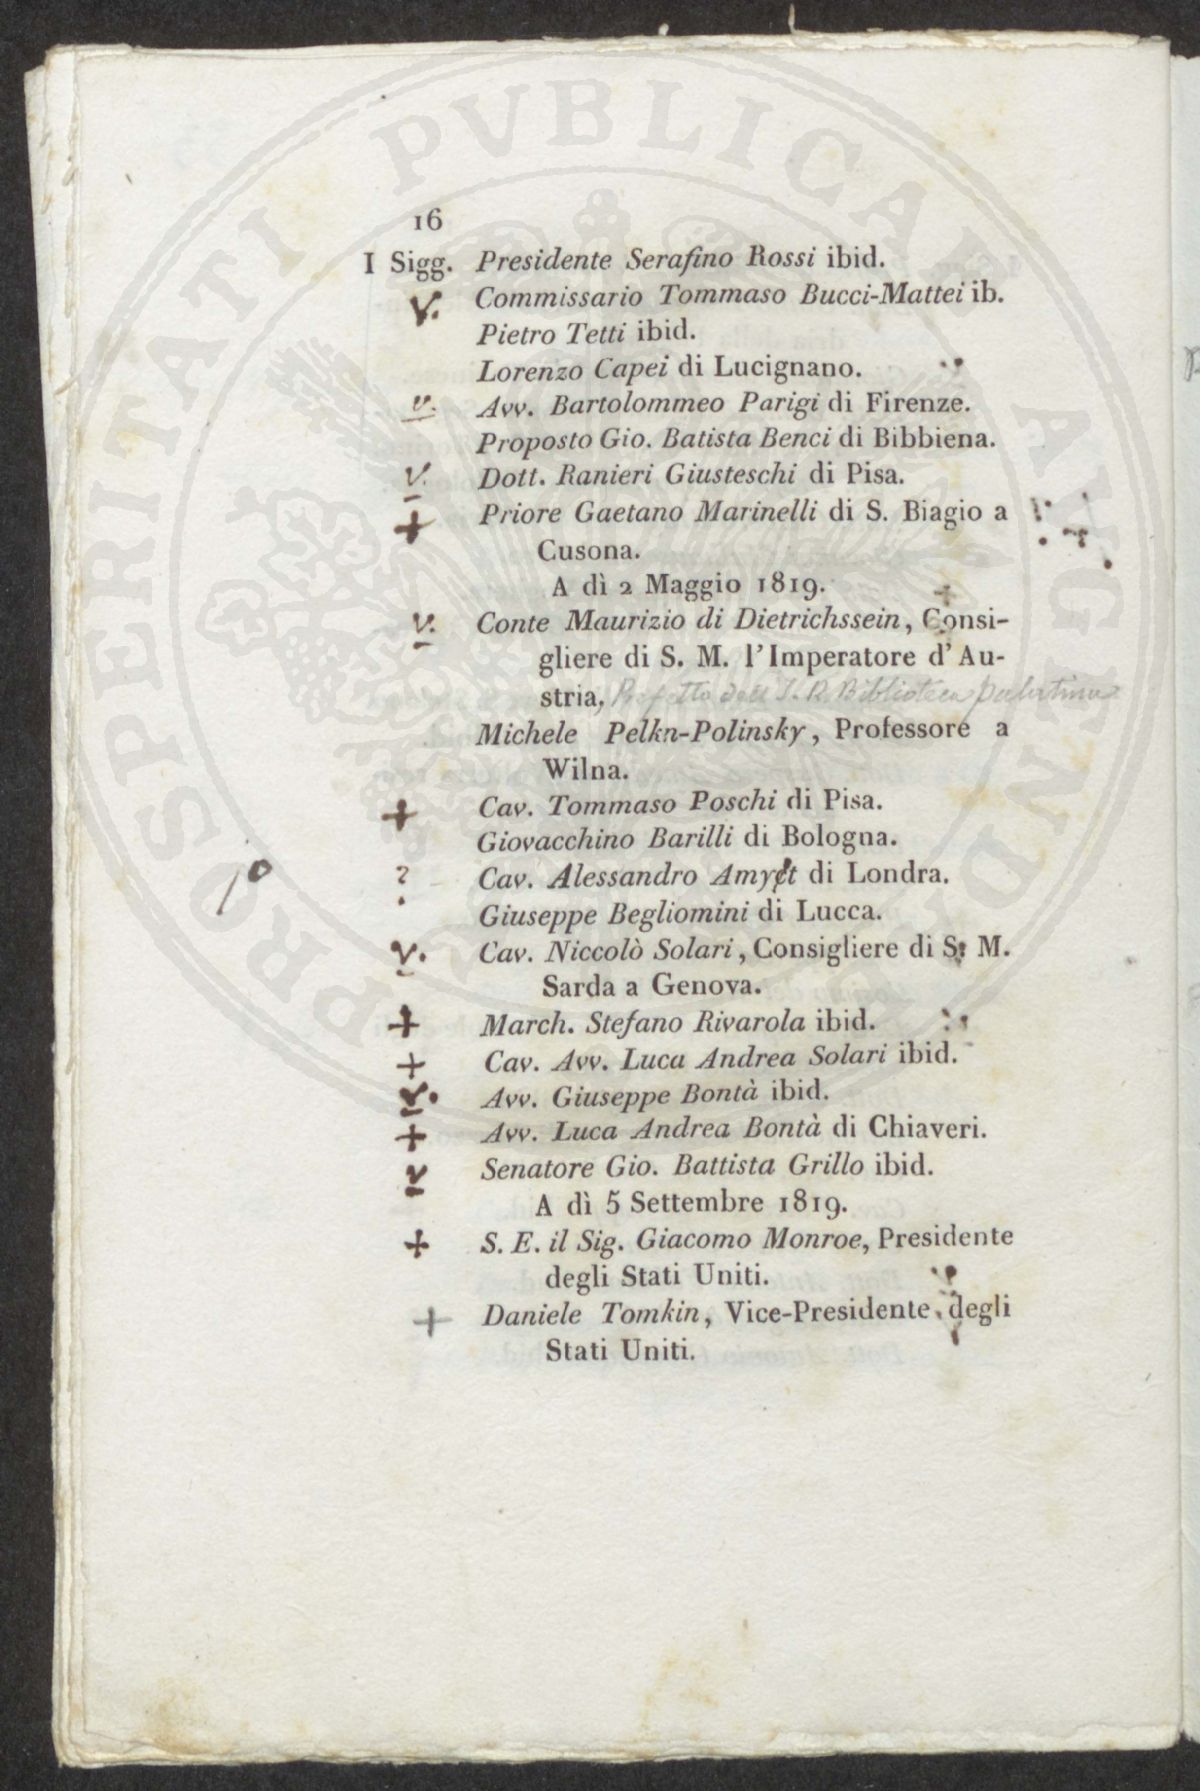 16
I Sigg. Presidente Serafino Rossi ibid.
V. Commissario Tommaso Bucci-Mattei ib.
Pietro Tetti ibid.
Lorenzo Capei di Lucignano.
v. Avv. Bartolommeo Parigi di Firenze.
Proposto Gio. Batista Benci di Bibbiena.
V. Dott. Ranieri Giusteschi di Pisa.
+ Priore Gaetano Marinelli di S. Biagio a
Cusona.
A dì 2 Maggio 1819.
V. Conte Maurizio di Dietrichssein, Consi-
gliere di S. M. l'Imperatore d'Au-
stria, Prefetto dell' I. R. Biblioteca palatina
Michele Pelkn-Polinsky, Professore a
Wilna.
+ Cav. Tommaso Poschi di Pisa.
Giovacchino Barilli di Bologna.
? Cav. Alessandro Amyct di Londra.
Giuseppe Begliomini di Lucca.
v. Cav. Niccolò Solari, Consigliere di S. M.
Sarda a Genova.
+ March. Stefano Rivarola ibid.
+ Cav. Avv. Luca Andrea Solari ibid.
v. Avv. Giuseppe Bontà ibid.
+ Avv. Luca Andrea Bontà di Chiaveri.
v Senatore Gio. Battista Grillo ibid.
A dì 5 Settembre 1819.
+ S. E. il Sig. Giacomo Monroe, Presidente
degli Stati Uniti.
+ Daniele Tomkin, Vice-Presidente degli
Stati Uniti.
PROSPERITATI PVBLICAE AVGENDAE